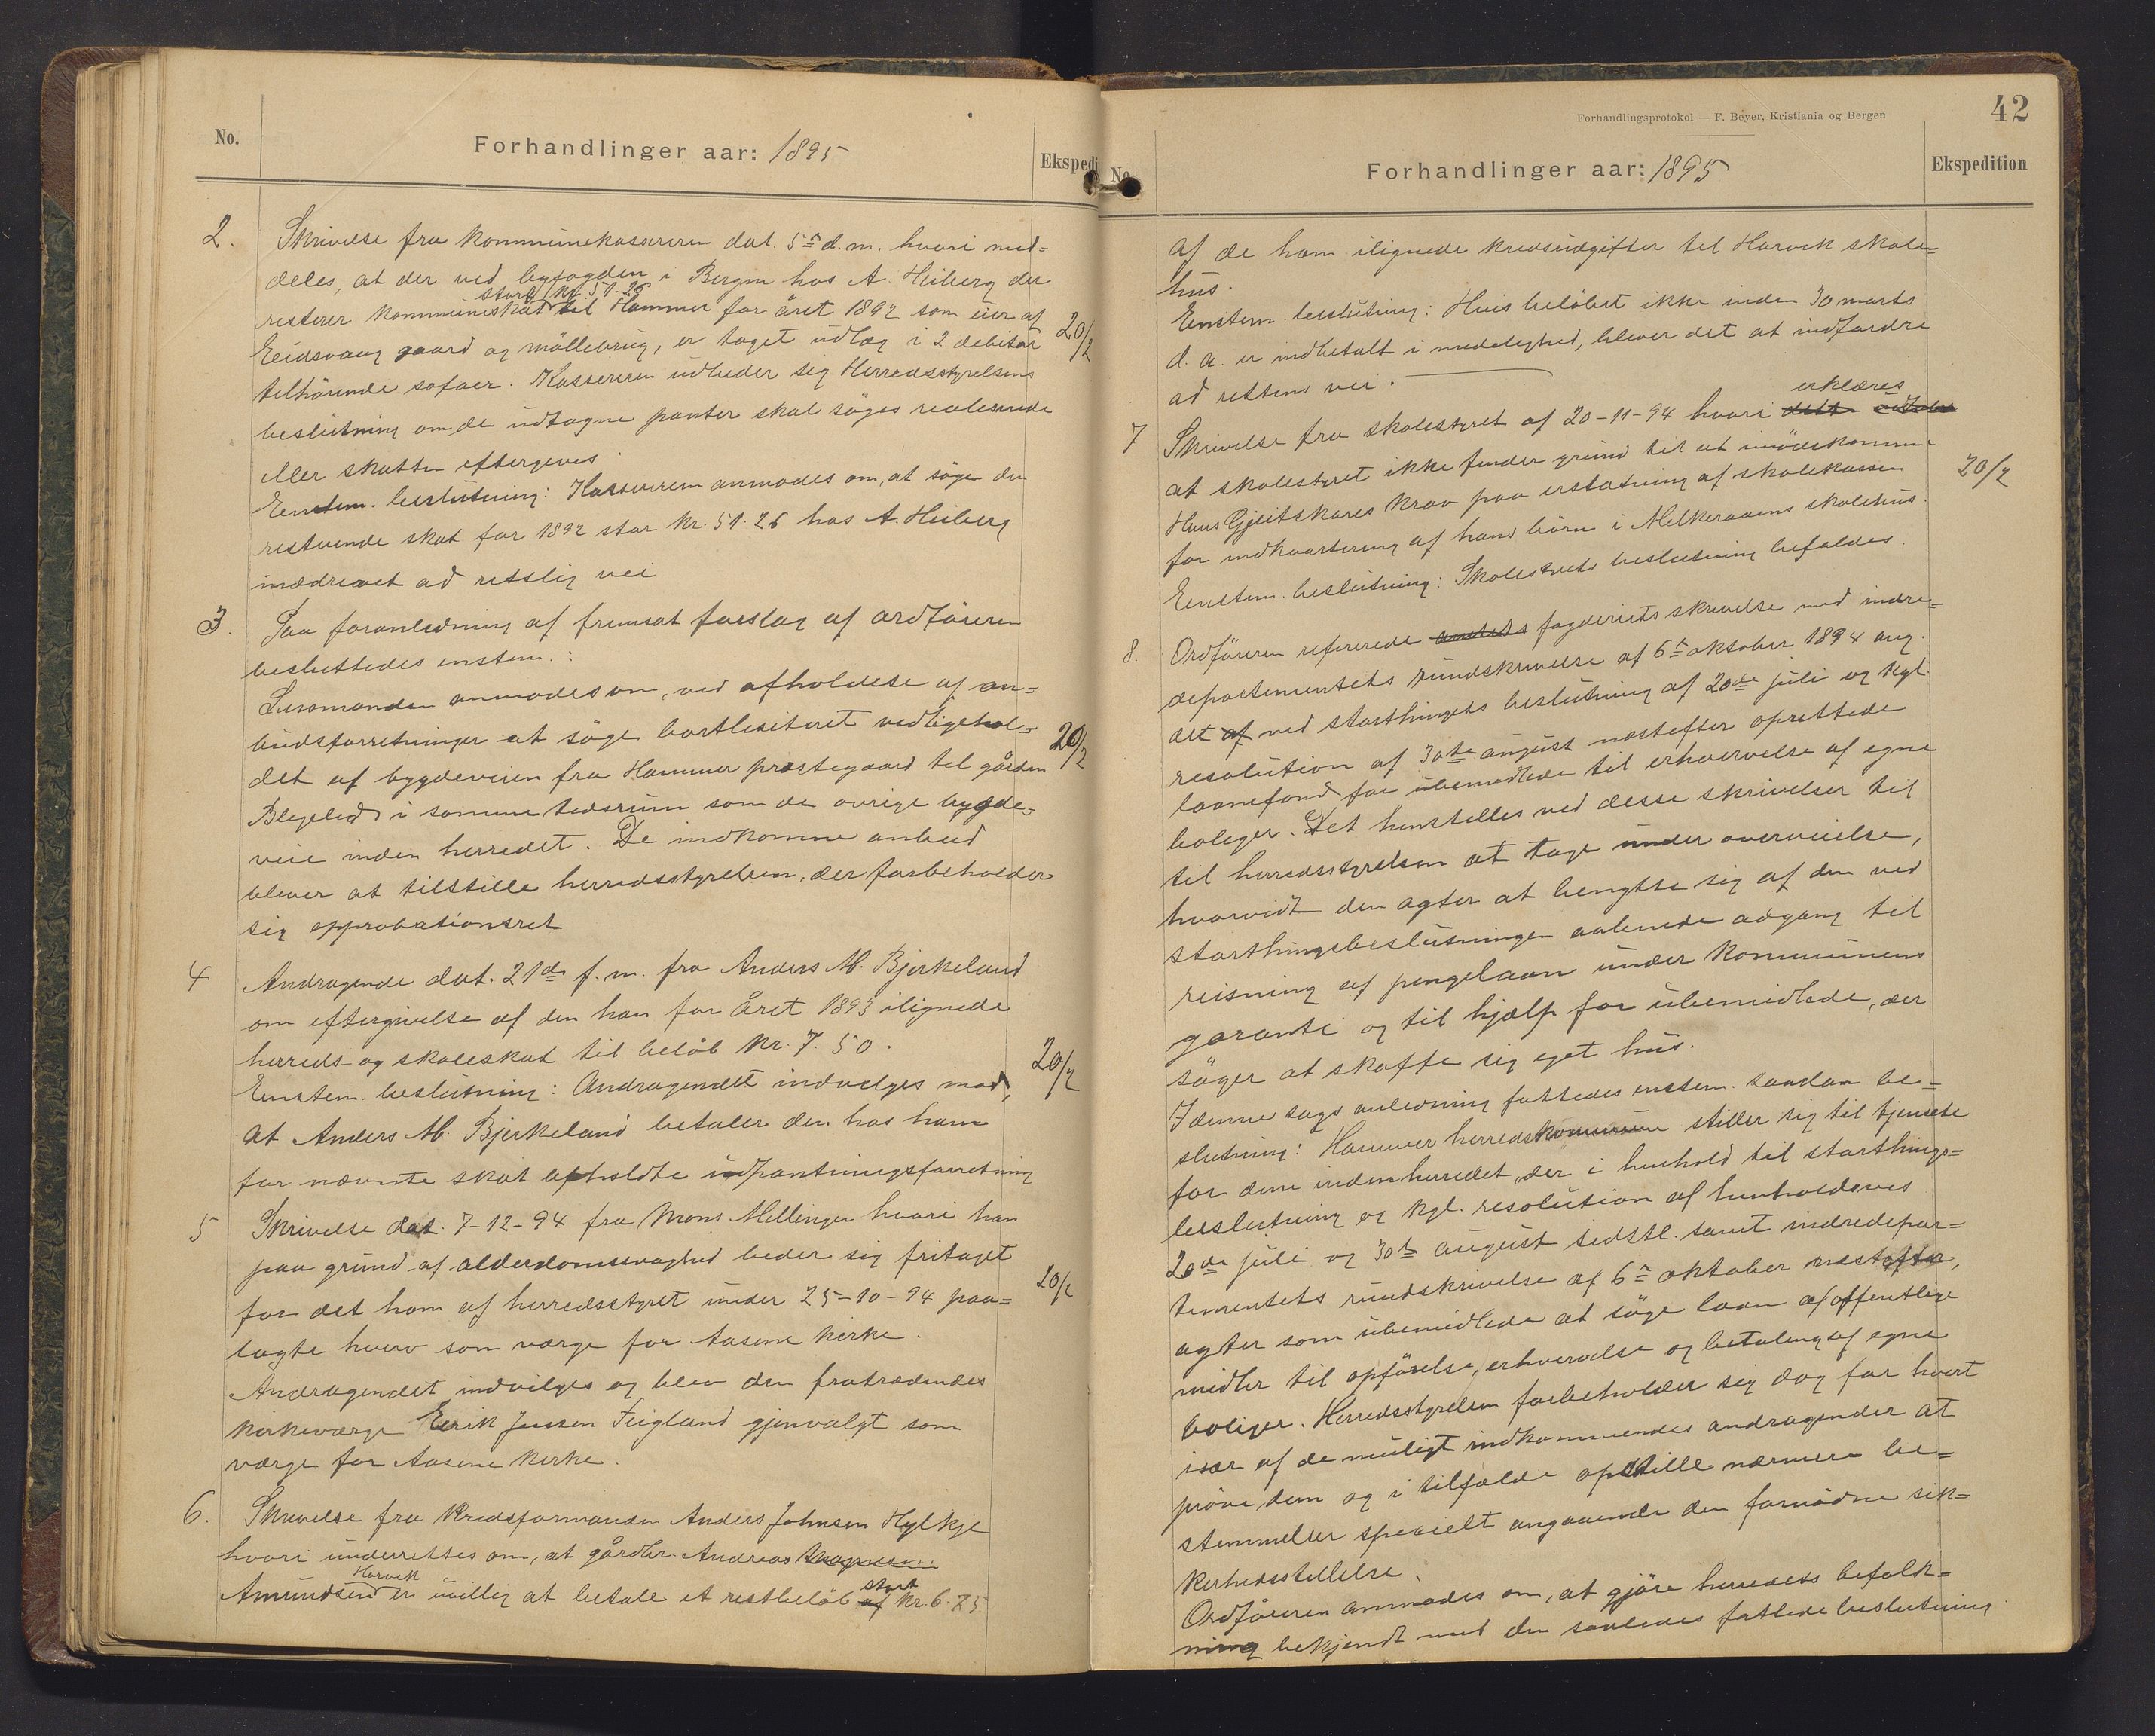 No.
Forhandlinger aar: 1895
Ekspedi
2.
Skrivelse fra kommunekassereren dat. 5te d. m. hvori med=
deles, at der ved byfogden i Bergen hos A. Heiberg der
stor kr. 51.26
resterer kommuneskat til Hammer for året 1892 som eier af
Eidsvaag gaard og møllebrug, er taget udlæg i 2 debitor
20/2
tilhørende sofaer. Kassereren udbeder sig Herredsstyrelsens
beslutning om de udtagne panter skal søges realiserede
eller skatten eftergives.
Eenstem. beslutning: Kassereren anmodes om, at søge den
resterende skat for 1892 stor kr. 51.26 hos A. Heiberg
inddrevet ad retslig vei
3.
Paa foranledning af fremsat forslag af ordføreren
besluttedes enstem.:
Lensmanden anmodes om, ved afholdelse af an=
budsforretninger at søge bortlisiteret vedligehol=
20/2
det af bygdeveien fra Hammer prestegaard til gården
Blegelid i samme tidsrum som de øvrige bygde=
veie inden herredet. De indkomne anbud
bliver at tilstille herredsstyrelsen, der forbeholder
sig approbationsret
4
Andragende dat. 21de f. m. fra Anders M. Bjerkeland
om eftergivelse af den han for året 1893 ilignede
herreds- og skoleskat til beløb kr. 7.50.
20/2
Eenstem. beslutning: Andragendet indvilges mod,
at Anders M. Bjerkeland betaler den hos ham
for nævnte skat afholdte udpantningsforretning
5
Skrivelse dat. 7-12-94 fra Mons Mellingen hvori han
paa grund af alderdomssvaghed beder sig fritaget
20/2
for det ham af herredsstyret under 25-10-94 paa=
lagte hverv som værge for Aasene kirke.
Andragendet indvilges og blev den fratrædendes
kirkeværge Eerik Jensen Teigland gjenvalgt som
værge for Aasene kirke.
6.
Skrivelse fra Kredsformanden Anders Johnsen Hylkje
hvori underrettes om, at gårdbr. Andreas
Horvik
stort
Amundsen er uvillig at betale et restbeløb af kr. 6.75
Forhandlingsprotokol — F. Beyer, Kristiania og Bergen
42
No.
Forhandlinger aar: 1895
Ekspedition
af de ham ilignede kredsudgifter til Horvik skole=
hus.
Eenstem. beslutning: Hvis beløbet ikke inden 30 marts
d. a. er indbetalt i mindelighed, bliver det at indfordre
ad rettens vei.
erklæres
7
Skrivelse fra skolestyret af 20-11-94 hvori dette
at skolestyret ikke finder grund til at imødekomme
20/2
Hans Gjeitskares krav paa erstatning af skolekassen
for indkvartering af hans børn i Melkeraaens skolehus.
Eenstem. beslutning: Skolestyrets beslutning bifaldes.
8.
Ordføreren refererede amtets fogderiets skrivelse med indre=
departementets rundskrivelse af 6te oktober 1894 ang.
det af ved storthingets beslutning af 20de juli og kgl.
resolution af 30te august næstefter oprettede
laanefond for ubemidlede til erhvervelse af egne
boliger. Det henstilles ved disse skrivelser til
til herredsstyrelsen at tage under overveielse,
hvorvidt den agter at benytte sig af den ved
storthingsbeslutningen aabnede adgang til
reisning af pengelaan under kommunens
garanti og til hjælp for ubemidlede, der
søger at skaffe sig eget hus.
I denne sags anledning fattedes enstem. saadan be=
slutning: Hammer herredskommune stiller sig til tjeneste
for dem inden herredet, der i henhold til storthings=
beslutning og kgl. resolution af henholdsvis
20de juli og 30te august sidstl. samt indredepar=
tementets rundskrivelse af 6te oktober næstefter,
agter som ubemidlede at søge laan af offentlige
midler til opførelse, erhvervelse og betaling af egne
boliger. Herredsstyrelsen forbeholder sig dog for hvert
især af de muligt indkommendes andragender at
prøve dem og i tilfælde opstille nærmere be=
stemmelser specielt angaaende den fornødne sik=
kerhedsstillelse.
Ordføreren anmodes om, at gjøre herredets befolk=
ning bekjendt med den saaledes fattede beslutning